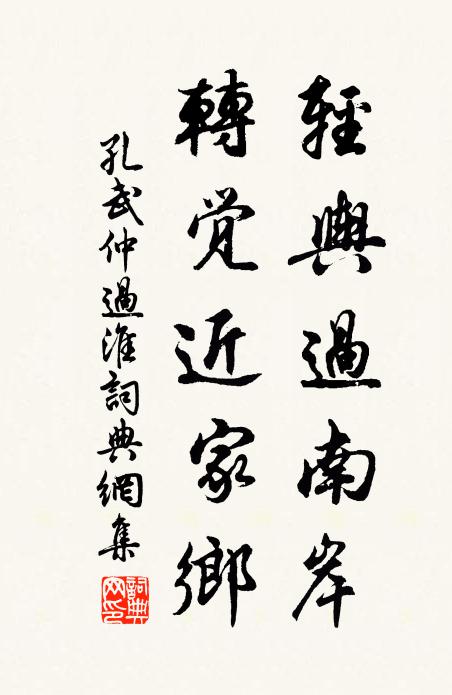 輕輿過南岸
轉覺近家鄉
孔武仲過淮詞典網集
詞典
网印